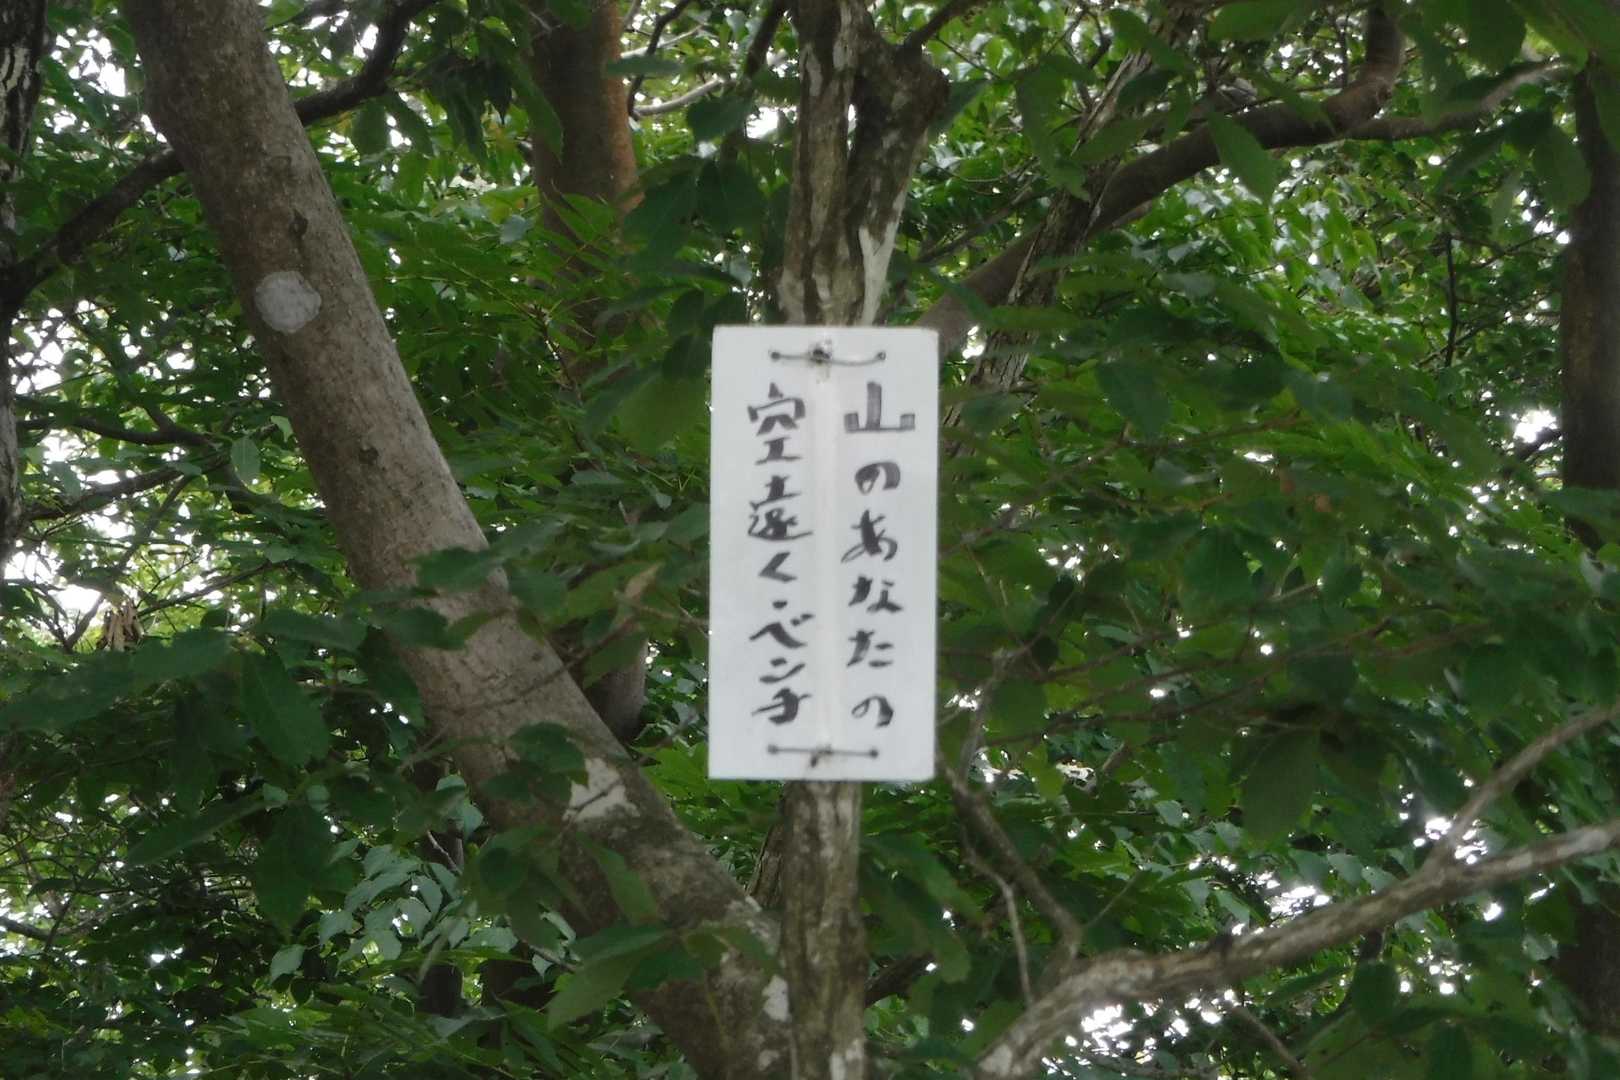 山のあなたの
空遠く・ベンチ